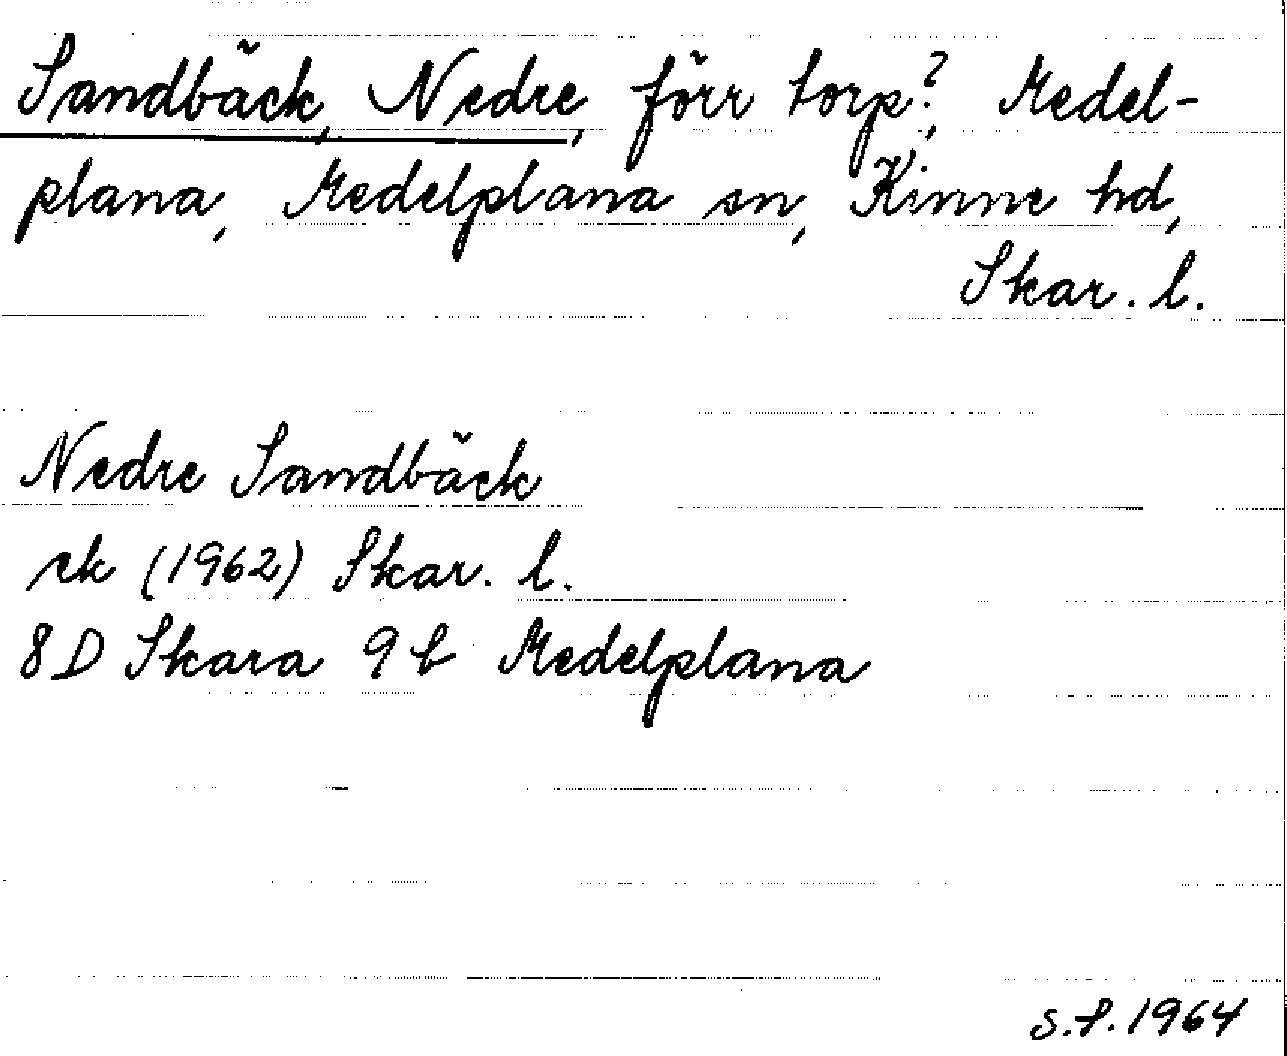 Sandbäck, Nedre, förr torp?, Medel-
plana, Medelplana sn, Kinne hd,
Skar. l.
Nedre Sandbäck
ek (1962) Skar. l.
8D Skara 9b Medelplana
S.P. 1964